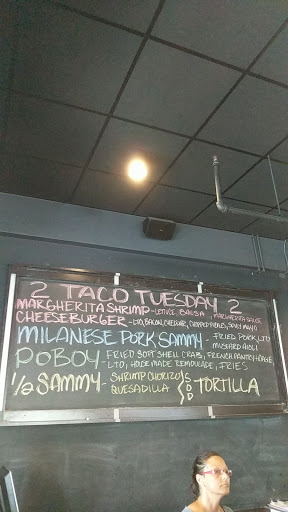 2 TACO TUESDAY 2
MARGHERITA SHRIMP - LETTUCE, SALSA, MARGHERITA SAUCE
CHEESEBURGER - LTO, BACON, CHEDDAR, CHOPPED PICKLES, SPICY MAYO
MILANESE PORK SAMMY - FRIED PORK, LTO
MUSTARD AIOLI
POBOY - FRIED SOFT SHELL CRABS, FRENCH PANTRY HOAGIE
LTO, HOUSE MADE REMOULADE, FRIES
1/2 SAMMY - SHRIMP CHORIZO SOD TORTILLA
QUESADILLA